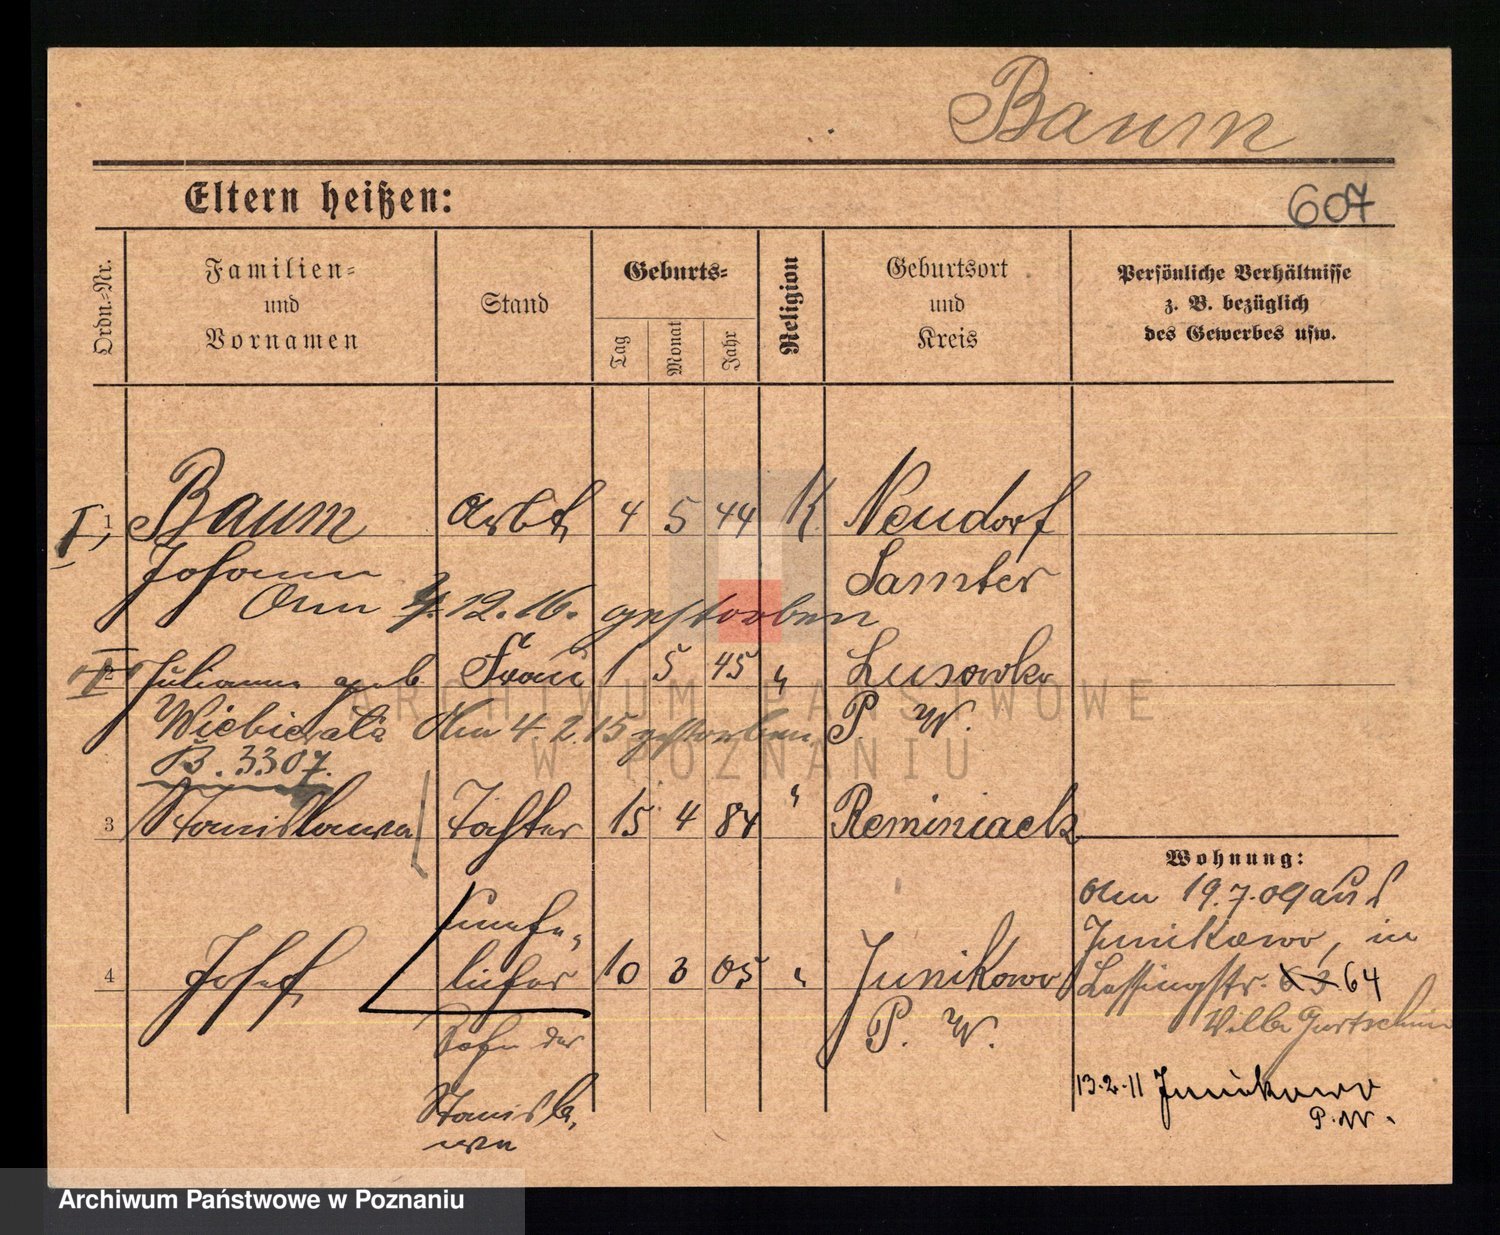 Baum
Eltern heißen:
607
Ordn.-Nr.
Familien-
und
Vornamen
Stand
Geburts-
Tag
Monat
Jahr
Religion
Geburtsort
und
Kreis
Persönliche Verhältnisse
z. B. bezüglich
des Gewerbes usw.
I, 1 Baum Arbt 4 5 44 K. Neudorf
Johann Samter
Am 4.12.16. gestorben
2 Julianna geb Frau 1 5 45 " Lusowko
Am 4.2.15 gestorben P. W.
B. 3307.
3 Stanislawa Tochter 15 4 84 " Reminiack
Wohnung:
Am 19.7.09 aus
Junikowo, in
4 Josef 10 3 05 " Junikowo
Lessingstr. 64
P. W.
Sohn der
Stanisla-
wa
13.2.11 Junikowo
P. W.
ARCHIWUM PAŃSTWOWE
W POZNANIU
Archiwum Państwowe w Poznaniu